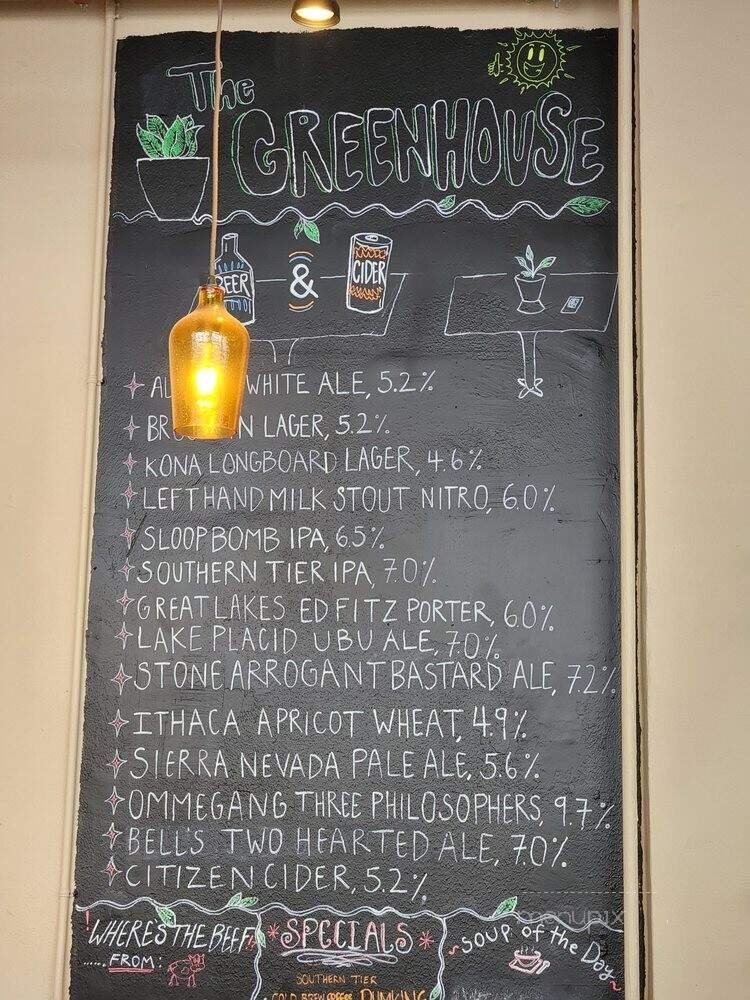 The
GREENHOUSE
BEER & CIDER
WHITE ALE, 5.2%
LAGER, 5.2%
KONA LONGBOARD LAGER, 4.6%
LEFT HAND MILK STOUT NITRO, 6.0%
SLOOP BOMB IPA, 6.5%
SOUTHERN TIER IPA, 7.0%
GREAT LAKES ED FITZ PORTER, 6.0%
LAKE PLACID UBU ALE, 7.0%
STONE ARROGANT BASTARD ALE, 7.2%
ITHACA APRICOT WHEAT, 4.9%
SIERRA NEVADA PALE ALE, 5.6%
OMMEGANG THREE PHILOSOPHERS, 9.7%
BELL'S TWO HEARTED ALE, 7.0%
CITIZEN CIDER, 5.2%
menupix
WHERES THE BEEF
......FROM:
*SPECIALS*
SOUTHERN TIER
COLD BREW COFFEE PUMKING
~SOUP OF the Day~